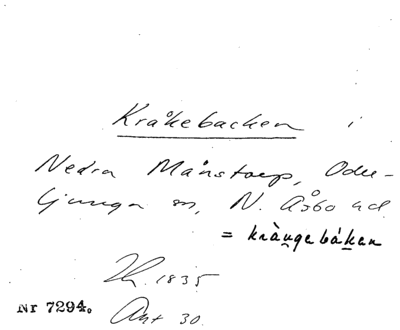 Kråkebacken i
Nedra Månstorp, Oder-
ljunga sn, N. Åsbo hd
= kràṉgebáḵen
1835
Nr 7294. Akt 30.